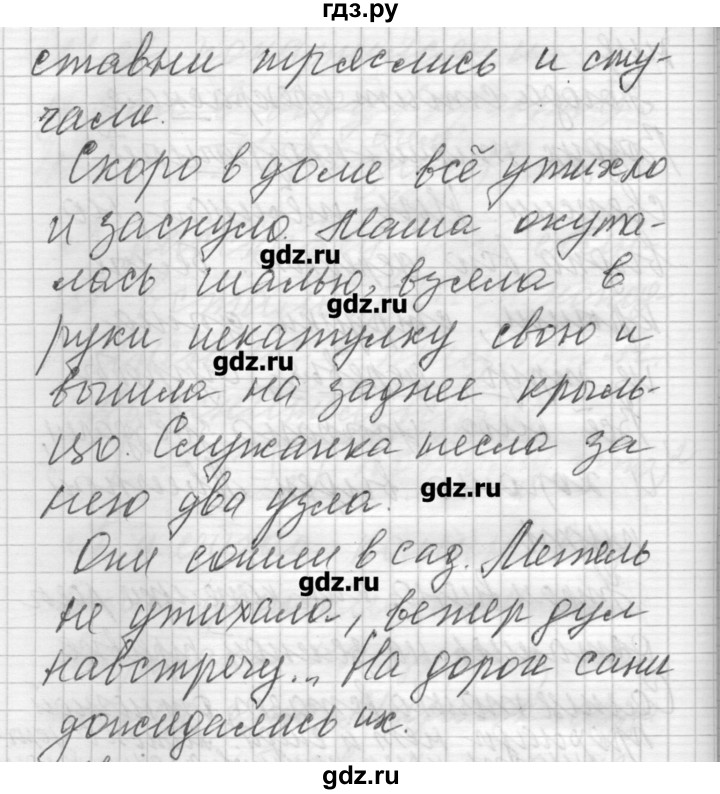 гдз.ру
ставни тряслись и сту-
чали.
Скоро в доме всё утихло
и заснуло. Маша окута-
gdz.ru
лась шалью, взяла в
gdz.ru
руки шкатулку свою и
gdz.ru
вышла на заднее крыль-
цо. Служанка несла за
gdz.ru
нею два узла.
Они сошли в сад. Метель
gdz.ru
не утихала, ветер дул
навстречу... На дороге сани
дожидались их.
gdz.ru